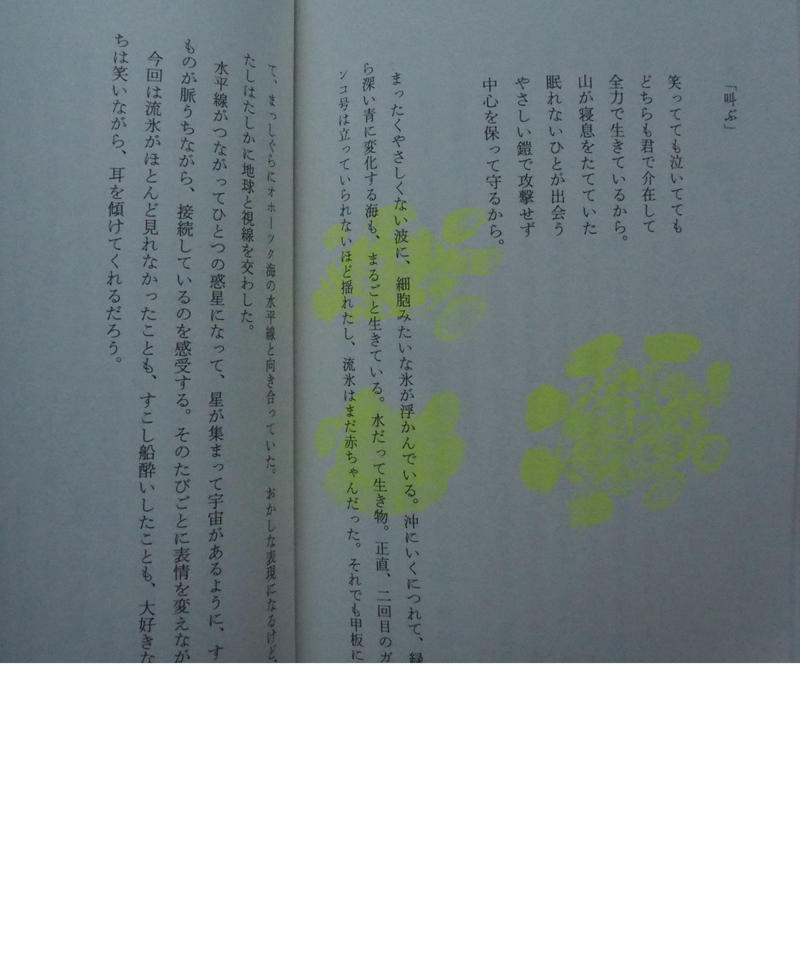 「叫ぶ」
笑ってても泣いてても
どちらも君で介在して
全力で生きているから。
山が寝息をたてていた
眠れないひとが出会う
やさしい鎧で攻撃せず
中心を保って守るから。
まったくやさしくない波に、細胞みたいな氷が浮かんでいる。沖にいくにつれて、緑
ら深い青に変化する海も、まるごと生きている。水だって生き物。正直、二回目のガ
ンコ号は立っていられないほど揺れたし、流氷はまだ赤ちゃんだった。それでも甲板に
て、まっしぐらにオホーツク海の水平線と向き合っていた。おかしな表現になるけど、
たしはたしかに地球と視線を交わした。
水平線がつながってひとつの惑星になって、星が集まって宇宙があるように、す
ものが脈うちながら、接続しているのを感受する。そのたびごとに表情を変えなが
今回は流氷がほとんど見れなかったことも、すこし船酔いしたことも、大好きな
ちは笑いながら、耳を傾けてくれるだろう。